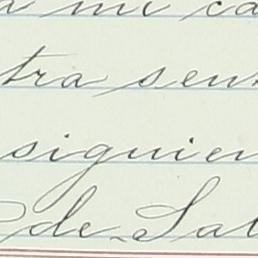 a mi ca
tra sent
siguien
de Sal